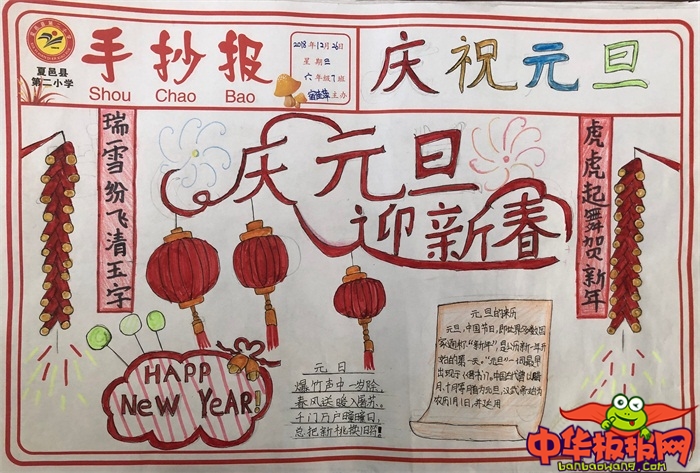 夏邑县
第二小学
手抄报
Shou Chao Bao
2018年12月26日
星期三
六年级7班
主办
庆祝元旦
瑞雪纷飞清玉宇
庆元旦
迎新春
虎虎起舞贺新年
HAPP
NEW YEAR!
元日
爆竹声中一岁除
春风送暖入屠苏。
千门万户曈曈日,
总把新桃换旧符!
元旦的来历
元旦,中国节日,即世界多数国
家通称"新年",是公历新一年开
始的第一天。"元旦"一词最早
出现于《晋书》。中国古代曾以腊
月、十月等月首为元旦,汉武帝始为
农历1月1日,并延用
中华板报网
banbaowang.com